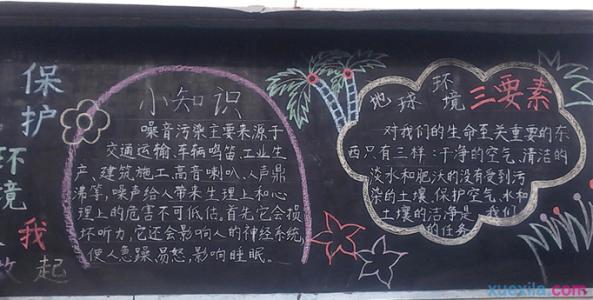 保护
环境
我
起
小知识
噪音污染主要来源于
交通运输、车辆鸣笛、工业生
产、建筑施工、高音喇叭、人声鼎
沸等,噪声给人带来生理上和心
理上的危害不可低估。首先它会损
坏听力,它还会影响人的神经系统,
使人急躁、易怒,影响睡眠。
地球环境三要素
对我们的生命至关重要的东
西只有三样:干净的空气、清洁的
淡水和肥沃的没有受到污
染的土壤、保护空气、水和
土壤的洁净是我们
的任务
xuexila.com